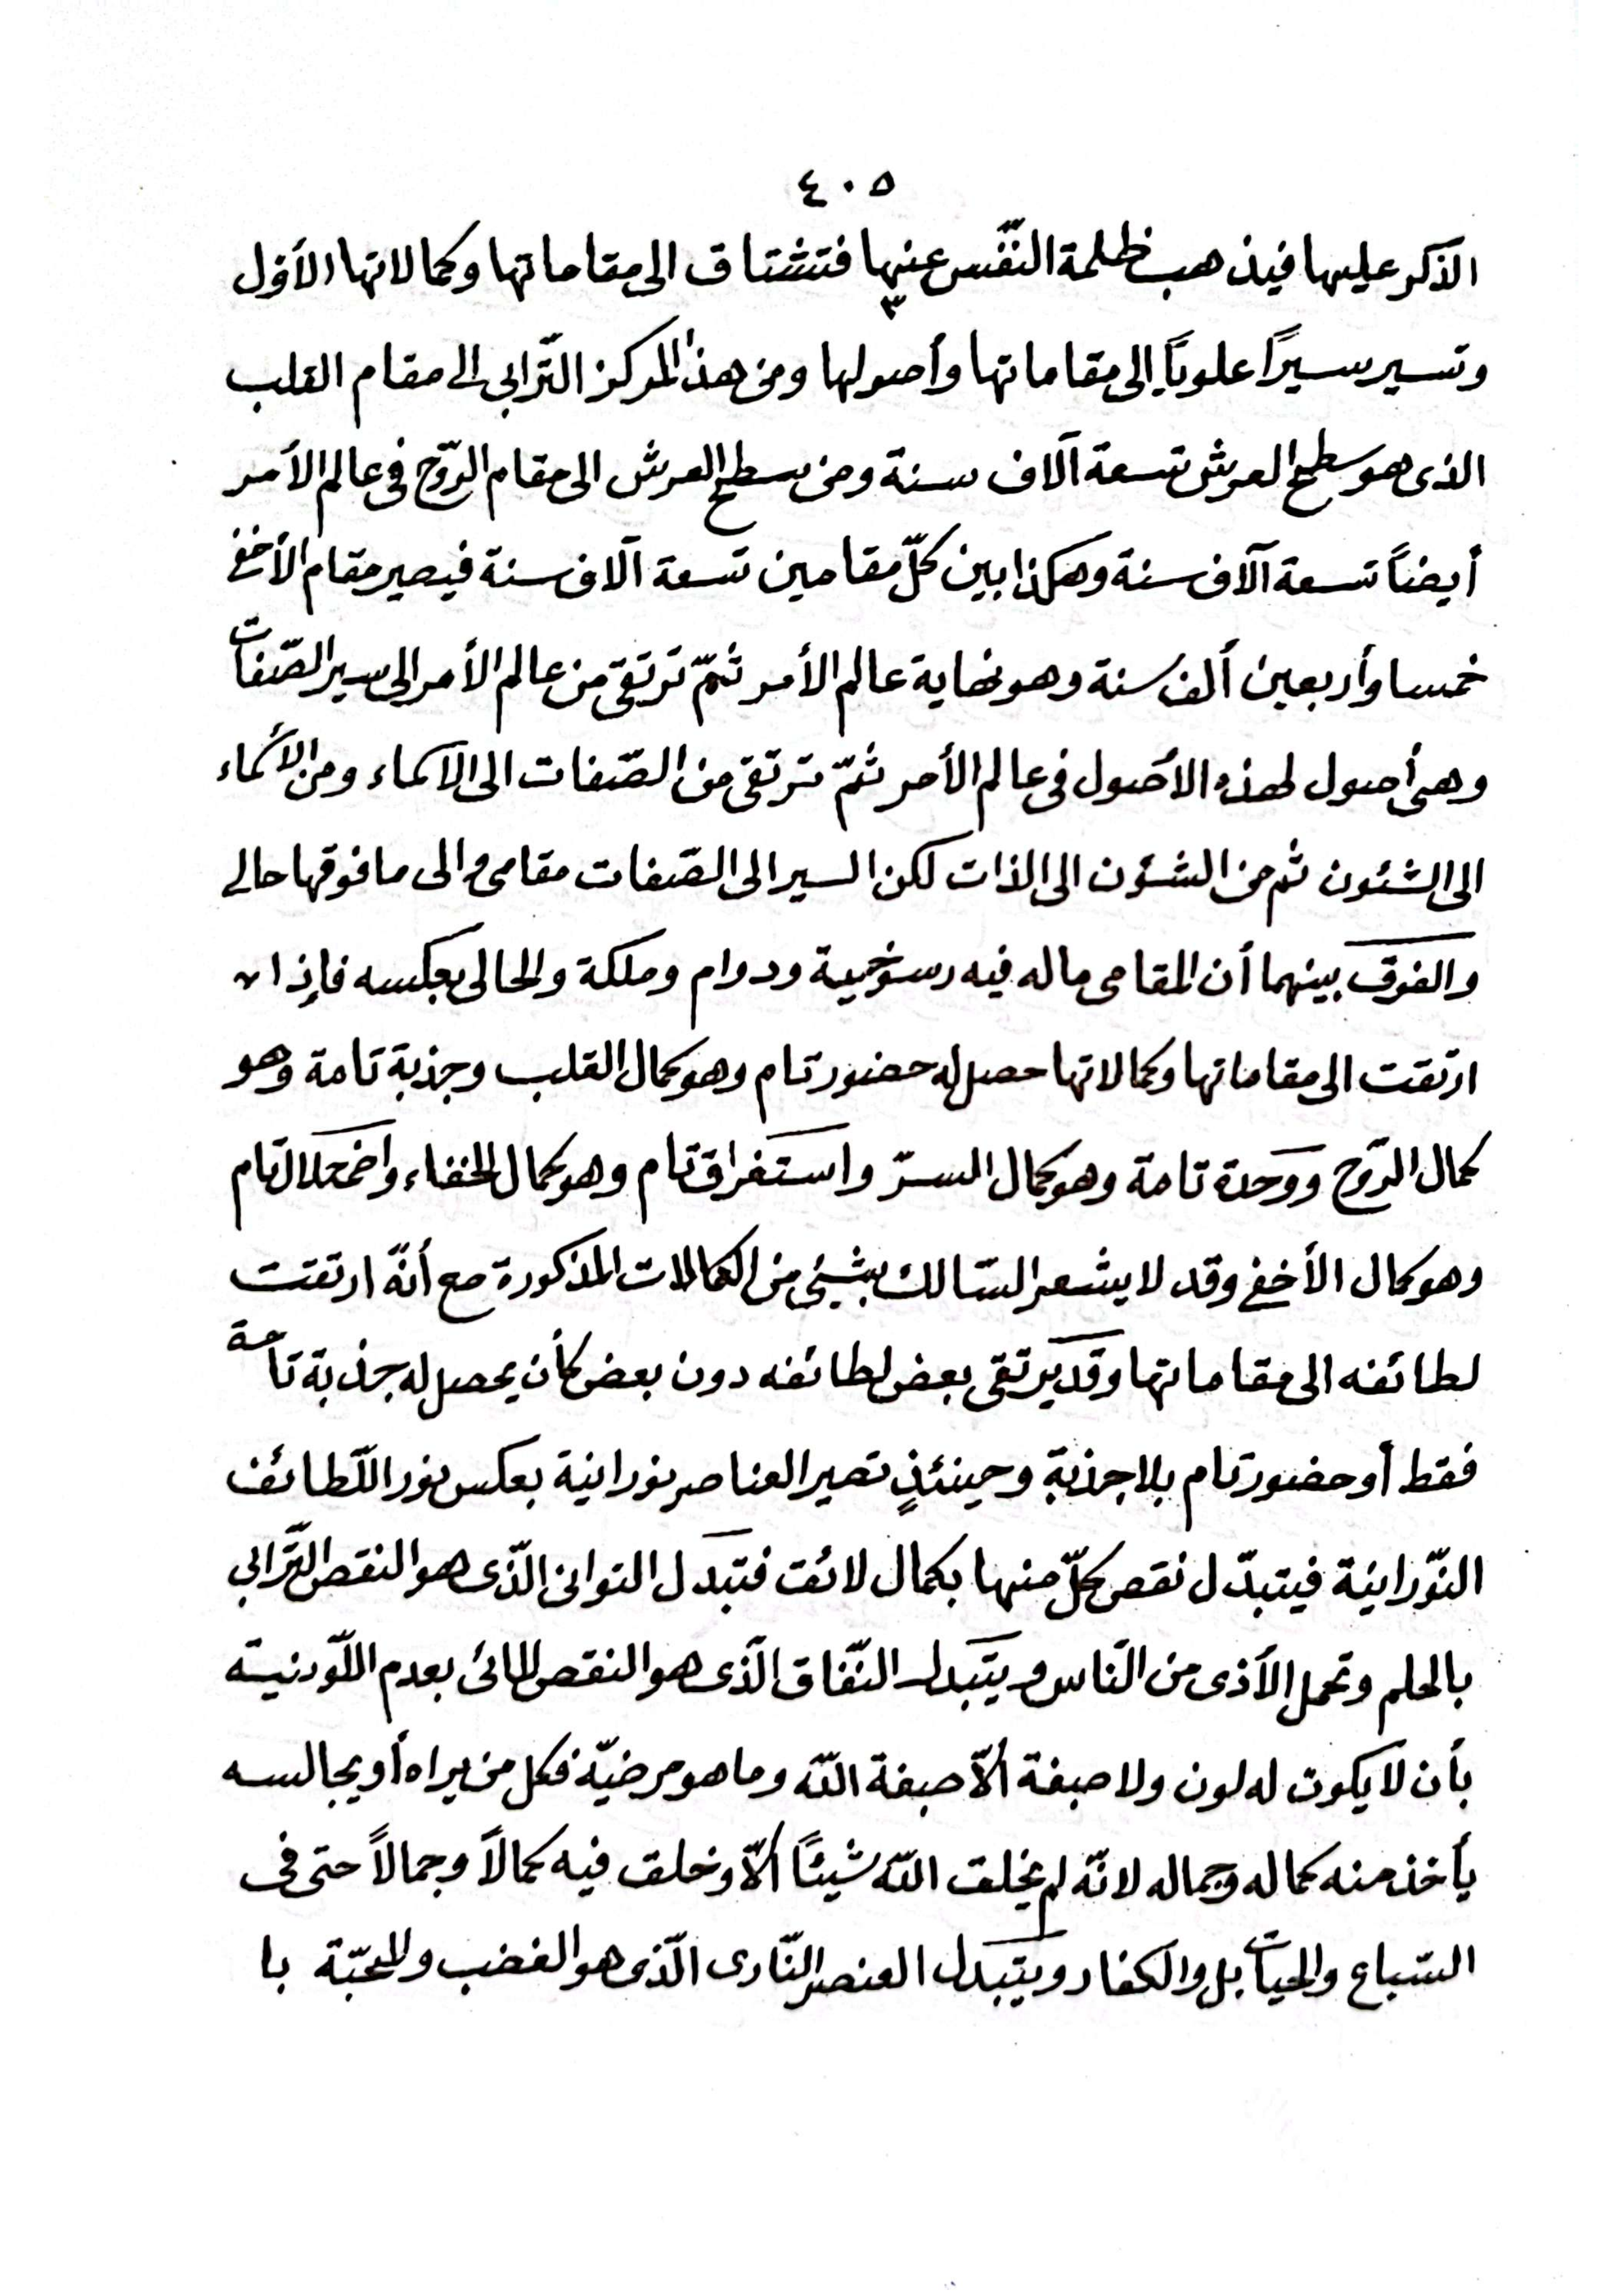 ٤٠٥
الذكر عليها فيذهب ظلمة النّفس عنها فتشتاق الى مقاماتها وكمالاتها الأوّل
وتسير سيرًا علويًا إلى مقاماتها وأصولها ومن هذا المركز التّرابى الى مقام القلب
الذى هو سطح العرش تسعة آلاف سنة ومن سطح العرش الى مقام الرّوح فى عالم الأمر
أيضاً تسعة آلاف سنة وهكذا بين كلّ مقامين تسعة آلاف سنة فيصير مقام الأخفى
خمسا وأربعين ألف سنة وهو نهاية عالم الأمر ثمّ ترتقى من عالم الأمر إلى سير الصّفات
وهى أصول لهذه الأصول فى عالم الأمر ثمّ ترتقى من الصّفات الى الأسماء ومن الأسماء
الى الشئون ثم من الشئون الى الذات لكن السير الى الصّفات مقامى والى ما فوقها حالى
والفرق بينهما أن المقامى ما له فيه رسوخية ودوام وملكة والحالى بعكسه فإذا
ارتقت الى مقاماتها وكمالاتها حصل له حضور تام وهو كمال القلب وجذبة تامة وهو
كمال الرّوح ووحدة تامة وهو كمال السرّ واستغراق تام وهو كمال الخفاء واضمحلال تام
وهو كمال الأخفى وقد لا يشعر السّالك بشيئ من الكمالات المذكورة مع أنّه ارتقت
لطائفه الى مقاماتها وقد يرتقى بعض لطائفه دون بعض كأن يحصل له جذبة تامة
فقط أو حضور تام بلا جذبة وحينئذٍ تصير العناصر نورانية بعكس نور اللّطائف
النّورانية فيتبدّل نقص كلّ منها بكمال لائق فتبدل التوانى الّذى هو النقص التّرابى
بالحلم وتحمل الأذى من النّاس ويتبدل النّفاق الّذى هو النقص المائى بعدم اللّونية
بأن لا يكون له لون ولا صبغة ألاّ صبغة اللّه وما هو مرضيّه فكل من يراه أو يجالسه
يأخذ منه كماله وجماله لانّه لم يخلق اللّه شيئًا ألاّ وخلق فيه كمالاً وجمالاً حتى فى
السّباع والحيات بل والكفار ويتبدل العنصر النّارى الّذى هو الغضب والمحبّة با